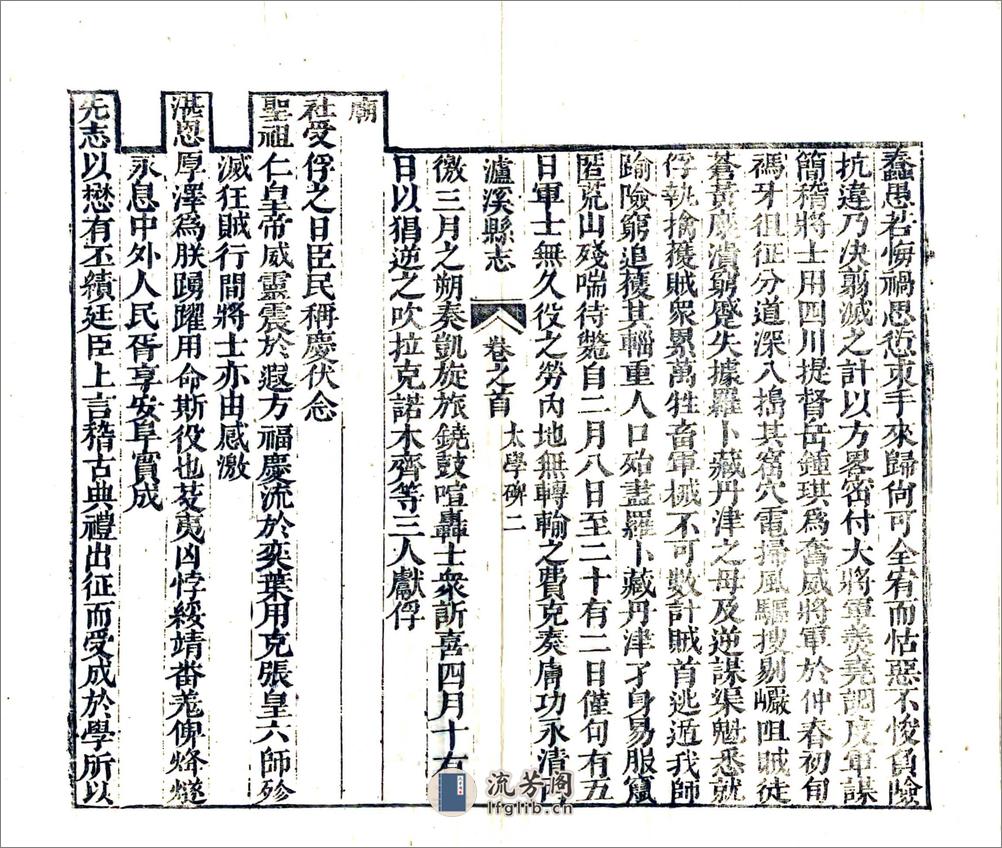 蠢愚若悔禍思愆束手來歸尚可全宥而怙惡不悛負險
抗違乃决翦滅之計以方畧密付大將軍羮堯調度軍謀
簡稽將士用四川提督岳鍾琪爲奮威將軍於仲春初旬
禡牙徂征分道深入搗其窟穴電掃風驅搜剔巗阻賊徒
蒼黃麋潰窮蹙失據羅卜藏丹津之母及逆謀渠魁悉就
俘執擒獲賊衆累萬牲畜軍械不可數計賊首逃遁我師
踰險窮追獲其輜重人口殆盡羅卜藏丹津孑身易服竄
匿荒山殘喘待斃自二月八日至二十有二日僅旬有五
日軍士無久役之勞內地無轉輸之費克奏膚功永清西
瀘溪縣志 卷之首 太學碑 二
徼三月之朔奏凱旋旅鐃鼓喧轟士衆訢喜四月十有
日以猖逆之吹拉克諾木齊等三人獻俘
廟
社受俘之日臣民稱慶伏念
聖祖仁皇帝威靈震於遐方福慶流於奕葉用克張皇六師殄
滅狂賊行間將士亦由感激
湛恩厚澤爲朕踴躍用命斯役也芟夷凶悖綏靖番羗俾烽燧
永息中外人民胥享安阜實成
先志以懋有丕績廷臣上言稽古典禮出征而受成於學所以
流芳阁
lfglib.cn